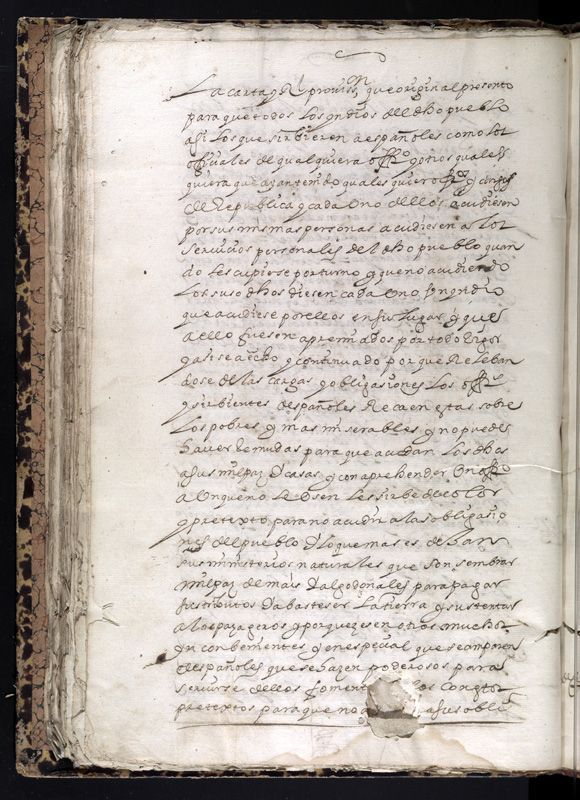 La carta y Rl provisn que original presento
para que todos los yndios del dho pueblo
asi los que sirbieren a españoles como los
officiales de qualquiera offo y otros quales
quiera que ayan tenido quales quier offos y cargos
de Republica y cada Uno dellos acudiesen
por sus mismas personas acudiesen a los
servicios personales del dho pueblo quan
do les cupiese por turno y que no acudiendo
los suso dhos diesen cada Uno Un yndio
que acudiese por ellos en su lugar y que
a ello fuesen apremiados por todo rigor
y asi se a echo y continuado porque Releban
dose de las cargas y obligasiones los
y sirbientes de españoles Recaen estas sobre
los pobres y mas miserables y no puede
haver Remudas para que acudan los dhos
a sus milpas y casas y con aprehender Un offo
a Unque no le Usen les sirbe de color
y pretexto para no acudir a las obligasio
nes del pueblo y lo que mas es dejan
sus ministerios naturales que son sembrar
milpas de mais y algodonales para pagar
sus tributos y abasteser la tierra y sustentar
a los pasageros y porque resultan otros muchos
yn conbenientes y en especial que se amparan
de españoles que se hazen poderosos para
servirse dellos foment los con estos
pretextos para que no a a sus obli